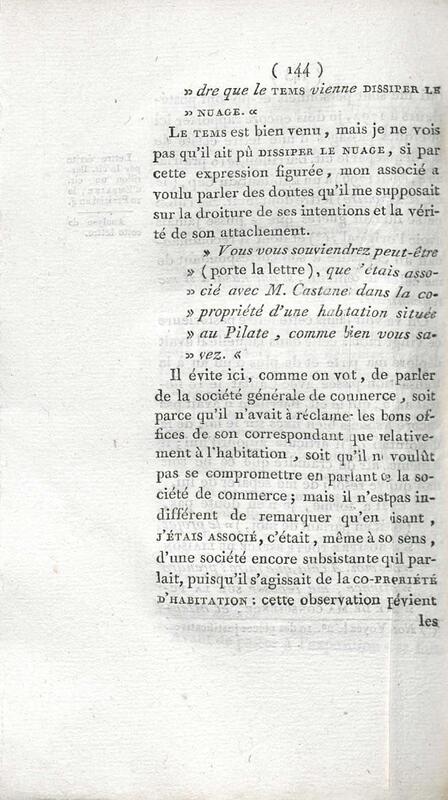 ( 144 )
» dre que le TEMS vienne DISSIPER LE
» NUAGE. «
LE TEMS est bien venu, mais je ne vois
pas qu'il ait pû DISSIPER LE NUAGE, si par
cette expression figurée, mon associé a
voulu parler des doutes qu'il me supposait
sur la droiture de ses intentions et la véri-
té de son attachement.
» Vous vous souviendrez peut-être
» (porte la lettre), que 'étais asso-
» cié avec M. Castane dans la co-
» propriété d'une habtation située
» au Pilate, comme bien vous sa-
» vez. «
Il évite ici, comme on vot, de parler
de la société générale de commerce, soit
parce qu'il n'avait à réclamer les bons of-
fices de son correspondant que relative-
ment à l'habitation, soit qu'il n voulût
pas se compromettre en parlant de la so-
ciété de commerce; mais il n'estpas in-
différent de remarquer qu'en isant,
J'ÉTAIS ASSOCIÉ, c'était, même à so sens,
d'une société encore subsistante quil par-
lait, puisqu'il s'agissait de la CO-PROPRIÉTÉ
D'HABITATION: cette observation pévient
les